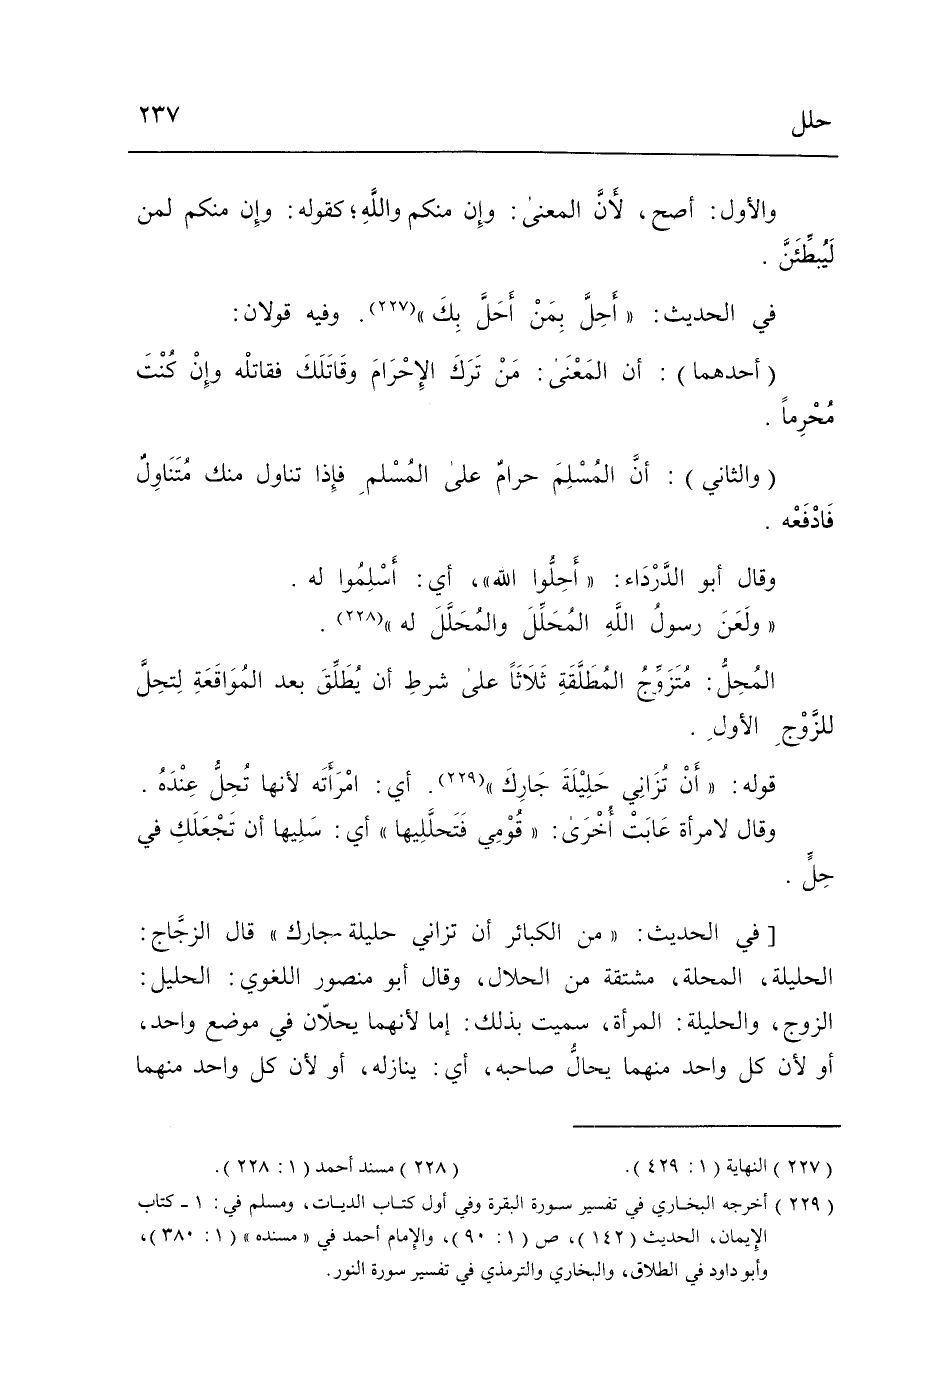 حلل ٢٣٧
والأول: أصح، لأَنَّ المعنىٰ: وإن منكم واللَّهِ؛ كقوله: وإن منكم لمن
لَيُبطِّئَنَّ .
في الحديث: « أَحِلَّ بِمَنْ أَحَلَّ بِكَ »(٢٢٧). وفيه قولان:
( أحدهما ) : أن المَعْنَىٰ: مَنْ تَرَكَ الإِحْرَامَ وقَاتَلَكَ فقاتلْه وإِنْ كُنْتَ
مُحْرِماً .
( والثاني ) : أنَّ المُسْلِمَ حرامٌ علىٰ المُسْلمِ فإِذا تناول منك مُتَنَاوِلٌ
فَادْفَعْه .
وقال أبو الدَّرْدَاء: « أَحِلُّوا الله»، أي: أَسْلِمُوا له .
« ولَعَنَ رسولُ اللَّهِ المُحَلِّلَ والمُحَلَّلَ له »(٢٢٨) .
المُحِلُّ: مُتَزَوِّجُ المُطَلَّقَةِ ثَلَاثَاً علىٰ شرطِ أن يُطَلِّقَ بعد المُوَاقَعَةِ لِتحِلَّ
للزَّوْجِ الأولِ .
قوله: « أَنْ تُزَانِي حَلِيْلَةَ جَارِكَ »(٢٢٩). أي: امْرَأَتَه لأنها تُحِلُّ عِنْدَهُ .
وقال لامرأة عَابَتْ أُخْرَىٰ: « قُوْمِي فَتَحلَّلِيها » أي: سَلِيها أن تَجْعَلَكِ في
حِلٍّ .
[ في الحديث: « من الكبائر أن تزاني حليلة جارك » قال الزجَّاج:
الحليلة، المحلة، مشتقة من الحلال، وقال أبو منصور اللغوي: الحليل:
الزوج، والحليلة: المرأة، سميت بذلك: إما لأنهما يحلّان في موضع واحد،
أو لأن كل واحد منهما يحالُّ صاحبه، أي: ينازله، أو لأن كل واحد منهما
( ٢٢٧ ) النهاية ( ١ : ٤٢٩ ). ( ٢٢٨ ) مسند أحمد ( ١ : ٢٢٨ ).
( ٢٢٩ ) أخرجه البخاري في تفسير سورة البقرة وفي أول كتاب الديات، ومسلم في: ١ ـ كتاب
الإيمان، الحديث ( ١٤٢ )، ص ( ١ : ٩٠ )، والإمام أحمد في « مسنده » ( ١ : ٣٨٠ )،
وأبو داود في الطلاق، والبخاري والترمذي في تفسير سورة النور.